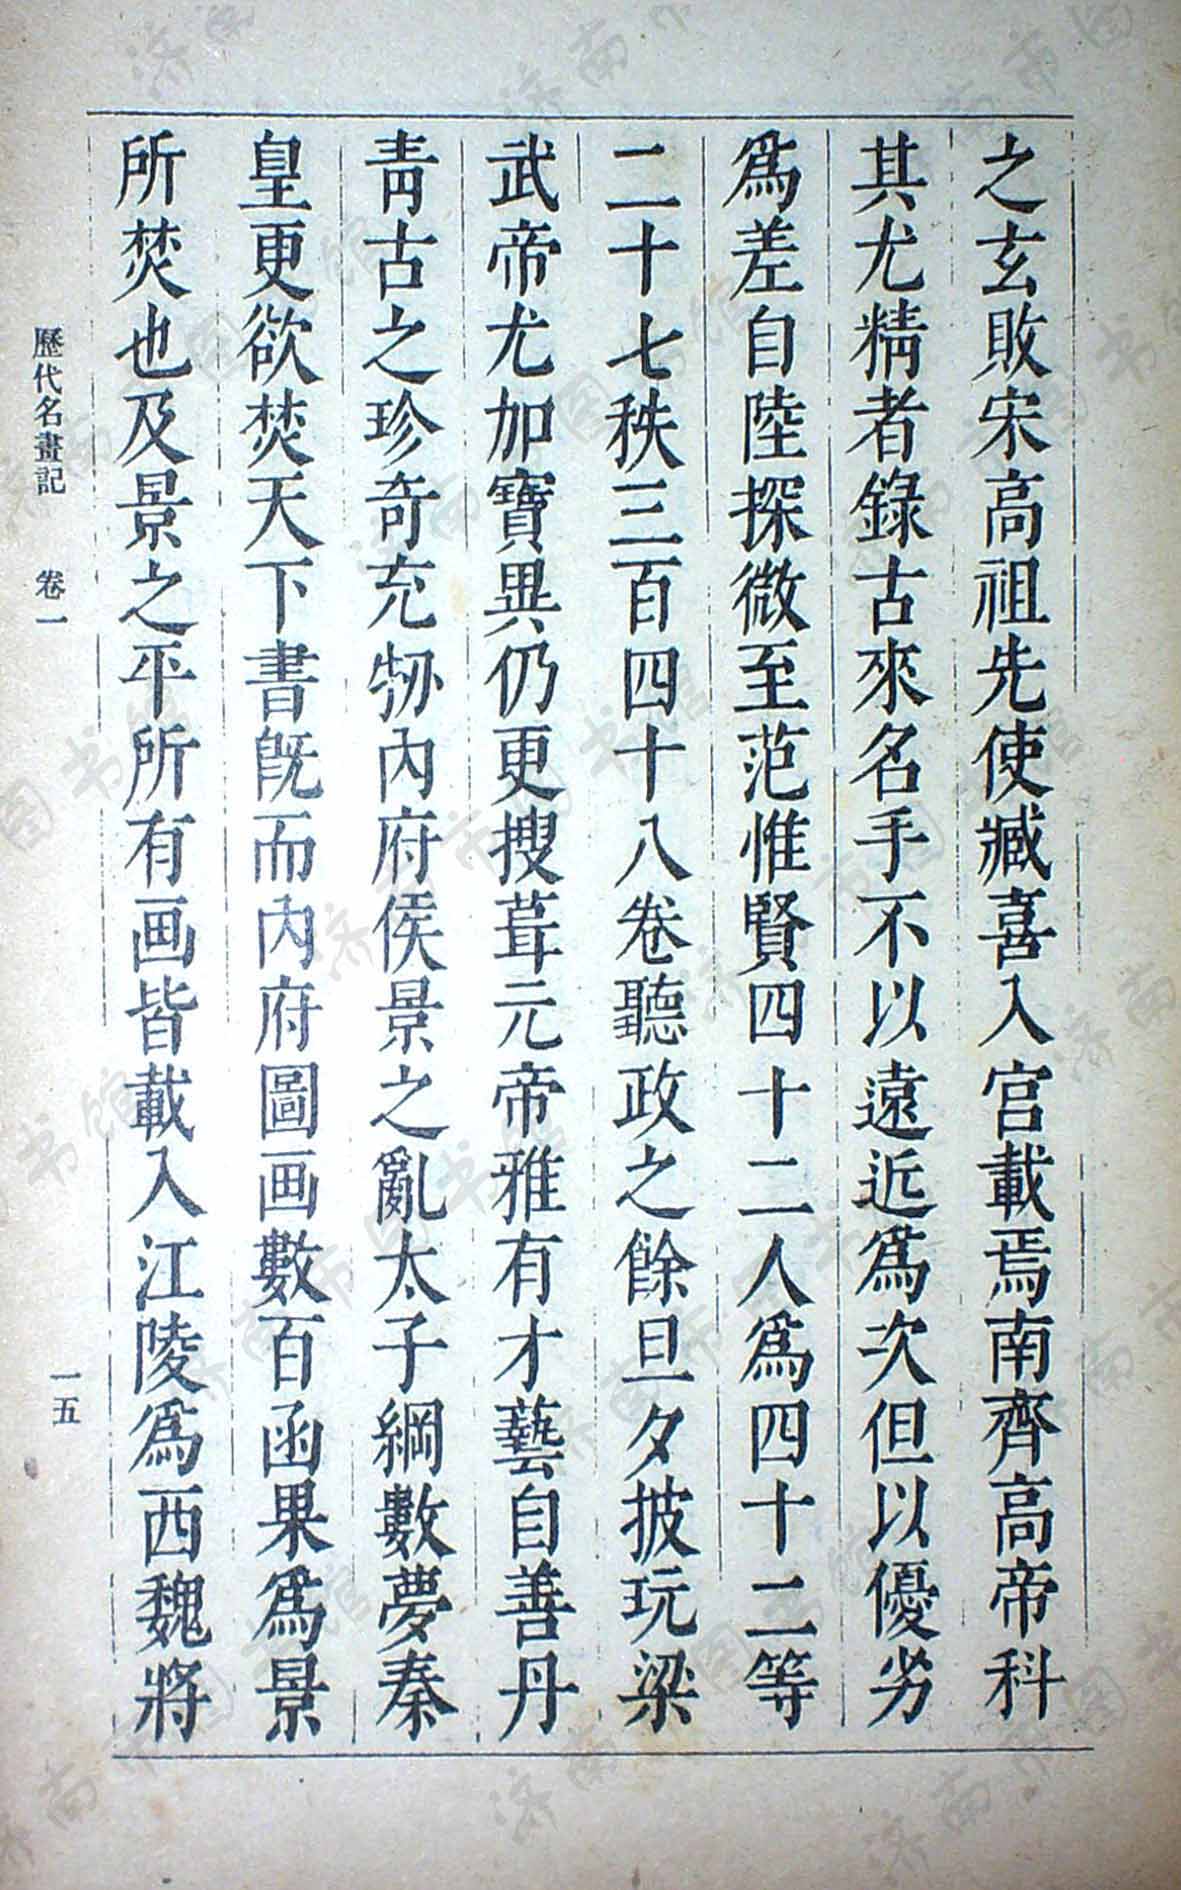 之玄敗宋高祖先使臧喜入宮載焉南齊高帝科
其尤精者錄古來名手不以遠近爲次但以優劣
爲差自陸探微至范惟賢四十二人爲四十二等
二十七秩三百四十八卷聽政之餘旦夕披玩梁
武帝尤加寶異仍更搜葺元帝雅有才藝自善丹
靑古之珍奇充牣內府侯景之亂太子綱數夢秦
皇更欲焚天下書旣而內府圖画數百函果爲景
所焚也及景之平所有画皆載入江陵爲西魏將
歷代名畫記 卷一 一五
济南市图书馆